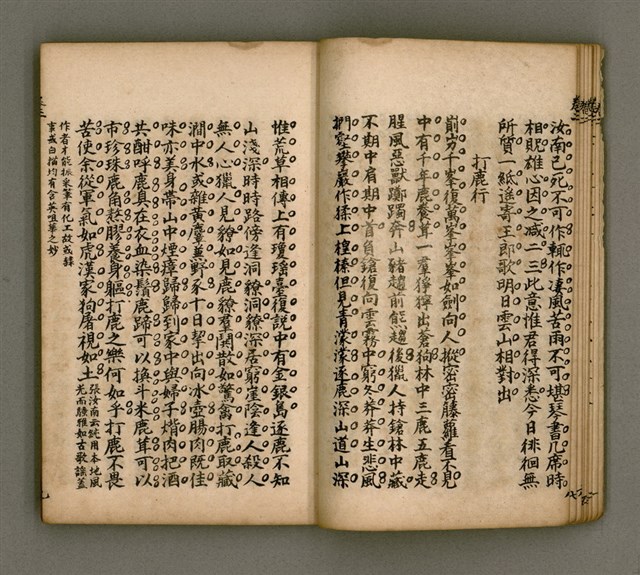 汝南已死不可作輒作淒風苦雨不可堪琴書几席時
相眤雄心因之减二三此意惟君得深悉今日徘徊無
所質一紙遥寄王郎歌明日雲山相對出
打鹿行
前岁千峯復萬峯峯峯如劍向人攢密密藤蘿看不見
中有千年鹿養茸一羣獰獰出蒼狗林中三鹿五鹿走
腥風惡獸躑躅奔山豬趨前熊趨後獵人持鎗林中藏
不期中肩期中首負鎗復向雲霧中窮冬莽莽生悲風
捫壑攀巖作猱上榿榛但見青濛濛逐鹿深山道山深
惟荒草相傳上有瓊瑶臺復説中有金銀島逐鹿不知
山淺深時時路傍逢洞獠洞獠深居窮崖陰逢人殺人
無人心獵人見獠如見鹿獠羣闃散如驚禽打鹿取藏
澗中水或雜黄麞並野豕十日挈出向冰壺腸肉既佳
味亦美身帶山中煙瘴歸歸到家中與婦子㸃肉把酒
共酣呼鹿真在衣血染鬚鹿蹄可以換斗米鹿茸可以
市珍珠鹿角熬膠養身軀打鹿之樂何如乎打鹿不畏
苦使余從軍氣如虎漢家狗屠視如土
張汝南云純用本地風
光而臻雅如古歌謡蓋
作者才能振衆筆有化工故或鋒
事或白描均有含英咀華之妙